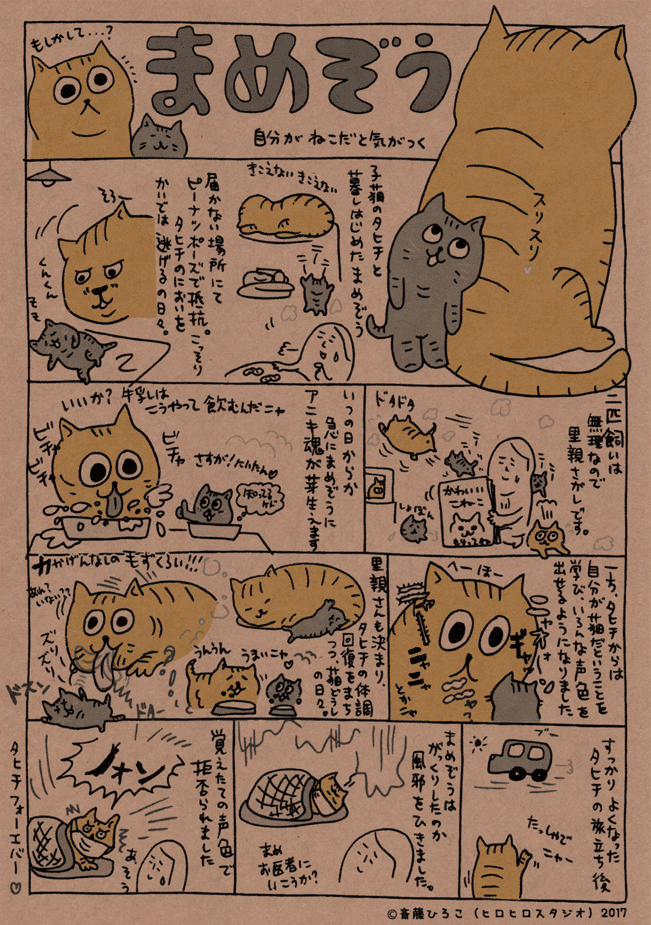 もしかして…?
まめぞう
自分がねこだと気がつく
スリスリ
子猫のタヒチと
暮しはじめたまめぞう
きこえないきこえない
届かない場所にて
ピーナッツポーズで抵抗。こっそり
タヒチのにおいを
かいでは逃げるの日々。
そろ〜
くんくん
モモ
二匹飼いは
無理なので
里親さがしです。
ドタドタ
かわいい
こねこ
しょぼん
いつの日からか
急にまめぞうに
アニキ魂が芽生えます
いいか?牛乳は
こうやって飲むんだニャ
ビチャ
ビチャ
ビチャ
さすが!たいたん
知ってる
ケド
一方、タヒチからは
自分が猫だということを
学び、いろんな声色を
出せるようになりました
へーほー
ギャッ
ニャン
里親さんも決まり、
タヒチの体調
回復をまち
つつ猫どう
の日々。
力かげんなしの毛ずくろい!!!
あれ?
いない??
ズリズリ
ドスン
ドA-
うんうん
うまいニャ
すっかりよくなった
タヒチの旅立ち後
ブー
たっしゃで
ニャー
まめぞうは
がっくりしたのか
風邪をひきました。
まめ
お医者に
いこうか?
覚えたての声色で
拒否られました
ノォン
あ、そう
タヒチフォーエバー♡
©斉藤ひろこ(ヒロヒロスタジオ)2017